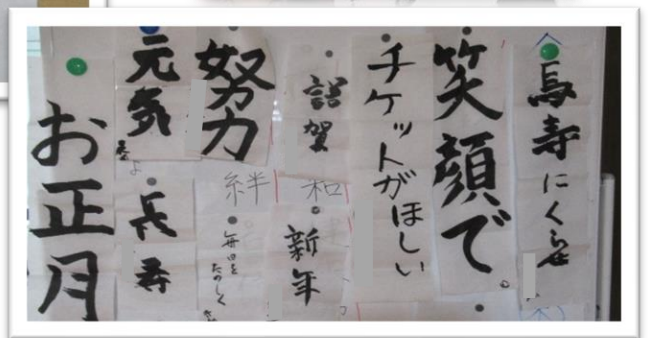 馬寿にくらせ
笑顔で
チケットがほしい
謹賀
新年
和
努力
絆
毎日を
たのしく
元気
長寿
お正月